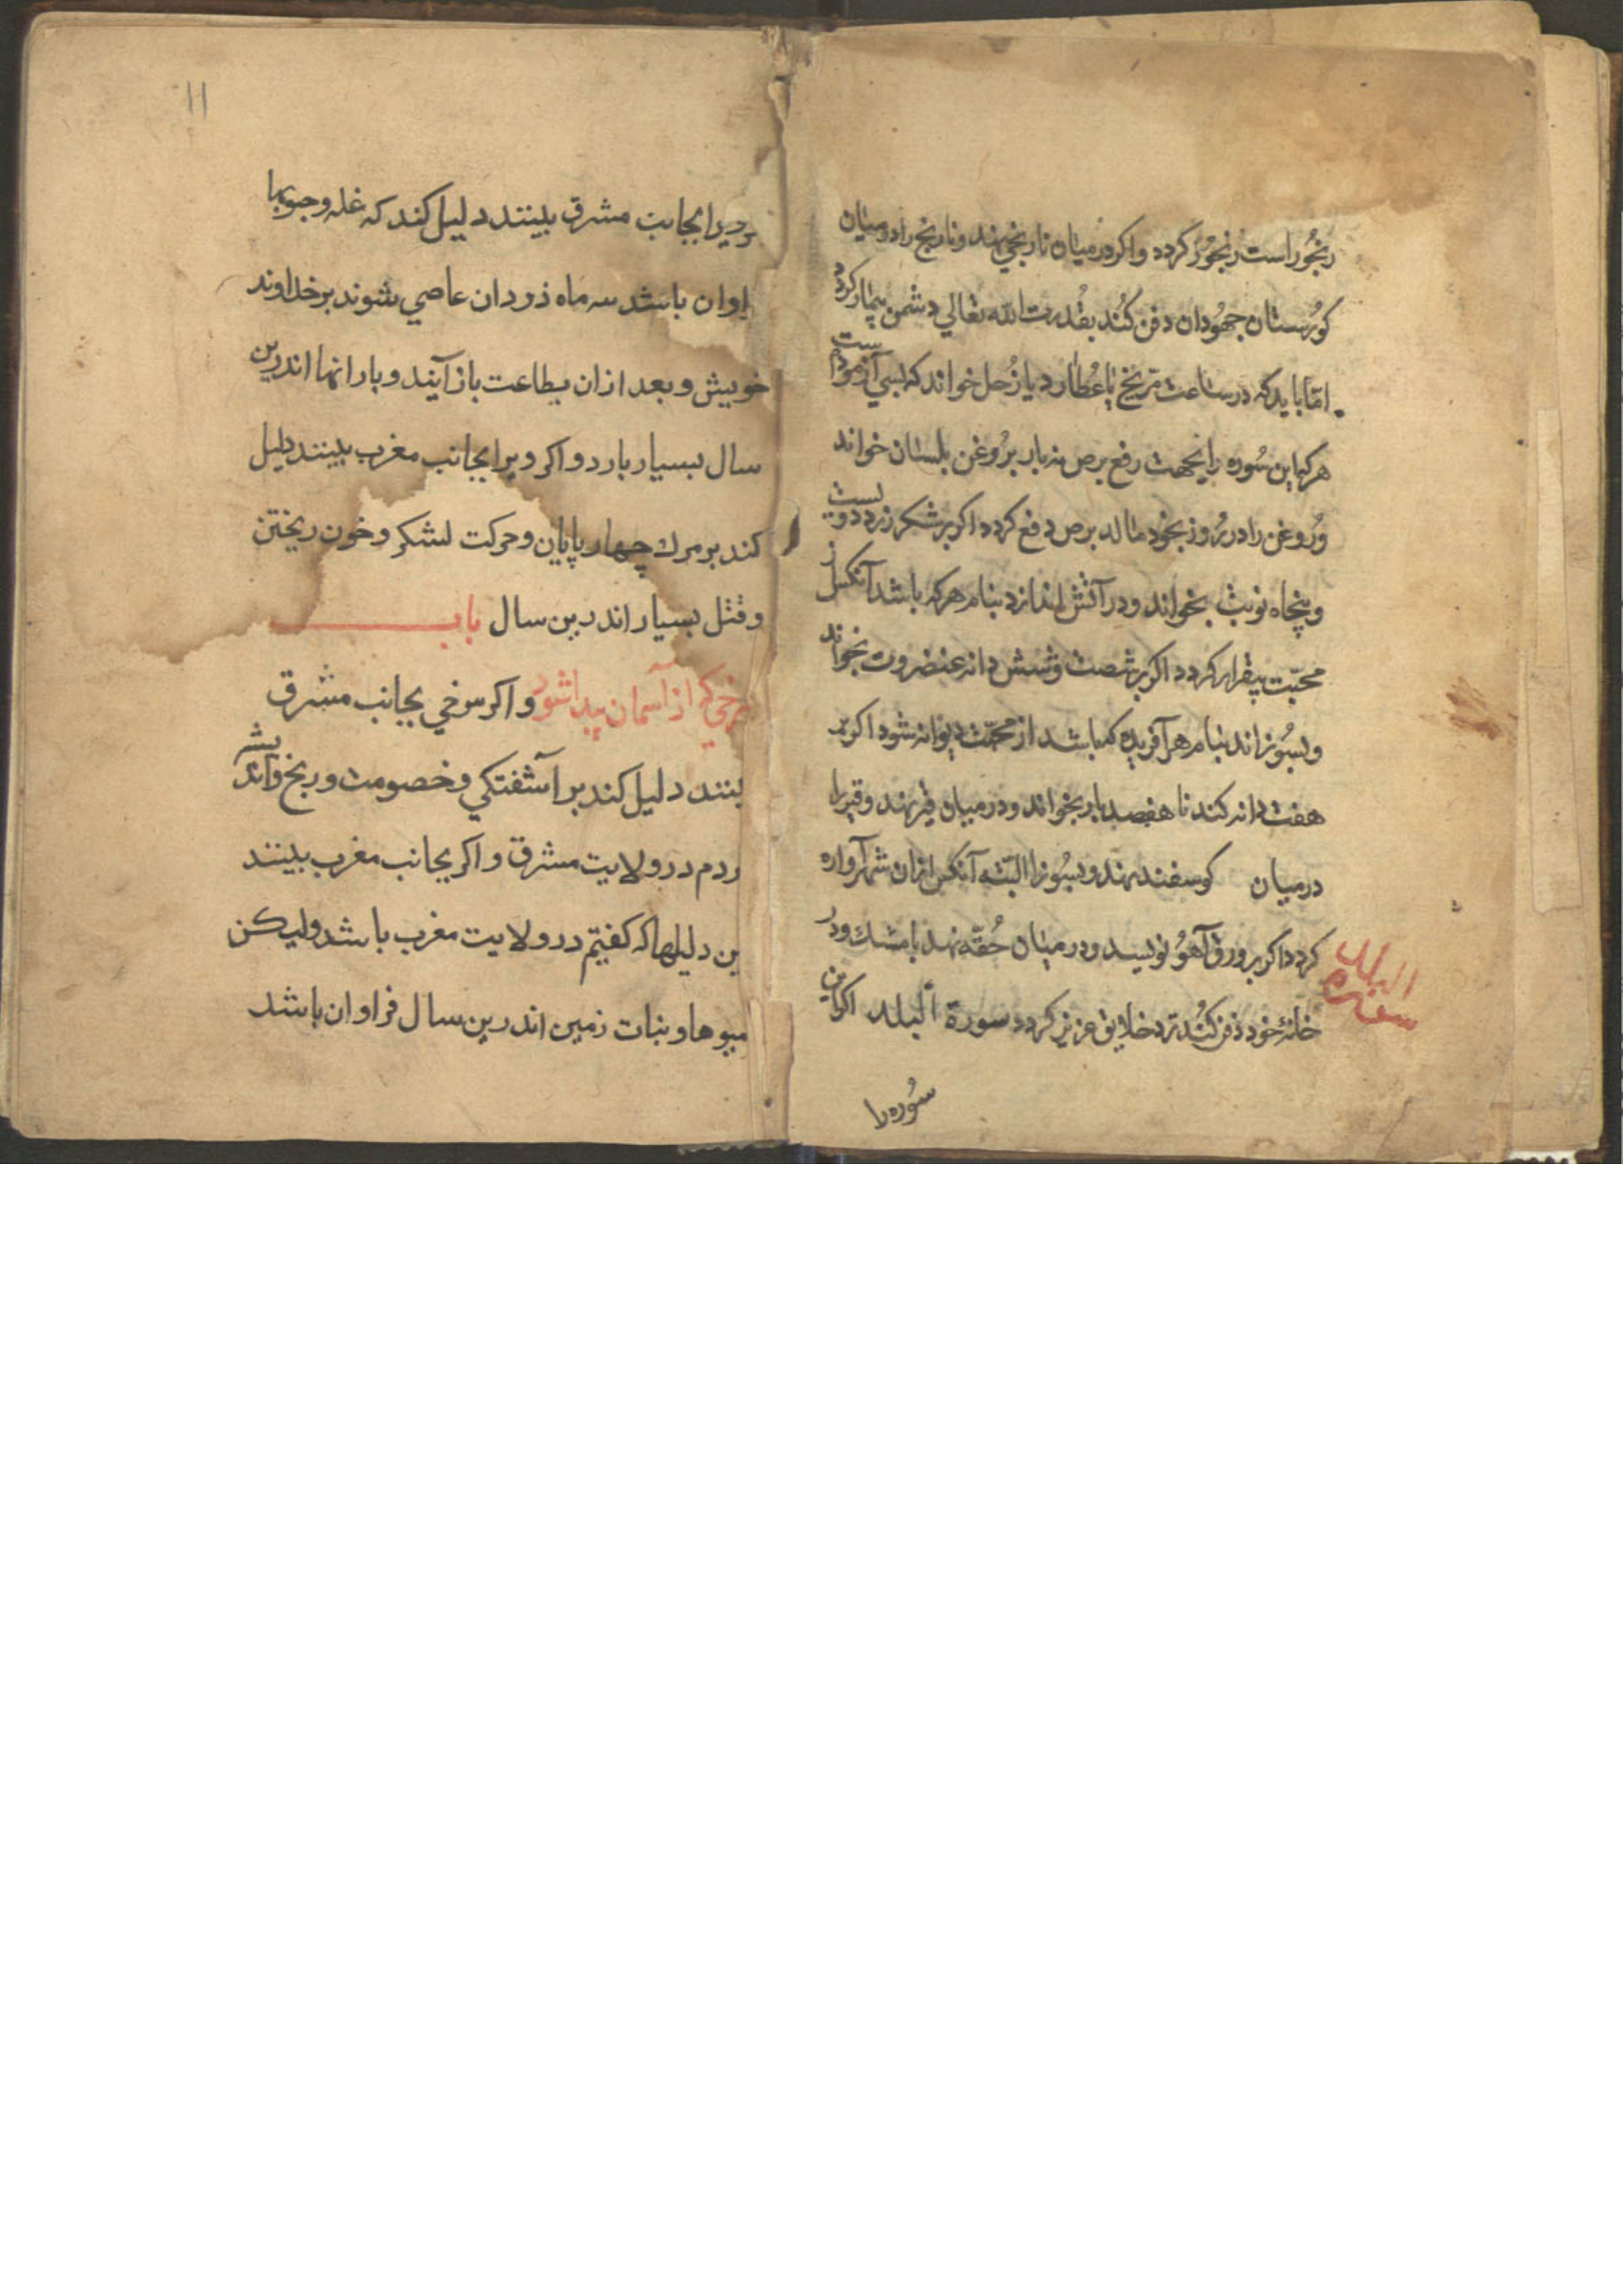 رنجور است رنجور کردد واکر در میان نارنجي نهند ونارنج را در میان
کورستان جهودان دفن کند بقدرت الله تعالي دشمن بیمار کردد
اما باید که در ساعت مریخ یا عطارد یا زحل خواند که بسي آزموده است
هر که این سوره را بجهت رفع برص نه بار بر روغن بلستان خواند
وروغن را در روز بخود مالد برص دفع کردد اکر بر شکر زرد دویست
وپنجاه نوبت بخواند ودر آتش اندازد بنام هر که باشد آنکس از
محبت بیقرار کردد اکر بر شصت وشش دانه بخواند
وبسوزاند بنام هر آفریده که باشد از محبت دیوانه شود اکر بر
هفت دانه کندنا هفصد بار بخواند ودر میان قیر نهند وقیر را
در میان کوسفند نهند وبسوزا البته آنکس ازان شهر آواره
کردد اکر بر ورق آهو نویسد ودر میان حقه نهد با مشك ودر
خانۀ خود دفن کند نزد خلایق عزیز کردد سورة البلد اکر این
سوره را
البلد
سوره
۱۱
ویرا بجانب مشرق بینند دلیل کند که غله وجوبها
اوان باشد سه ماه دردان عاصي شوند بر خداوند
خویش وبعد ازان بطاعت باز آیند وبارانها اندرین
سال بسیار بارد واکر ویرا بجانب مغرب بینند دلیل
کند بر مرك چهار پایان وحرکت لشکر وخون ریختن
وقتل بسیار اندرین سال باب
سرخي که از آسمان پیدا شود واکر سرخي بجانب مشرق
بینند دلیل کند بر آشفتکي وخصومت ورنج واندیشه
ردم در ولایت مشرق واکر بجانب مغرب بینند
ین دلیلها که کفتیم در ولایت مغرب باشد ولیکن
میوها ونبات زمین اندرین سال فراوان باشد